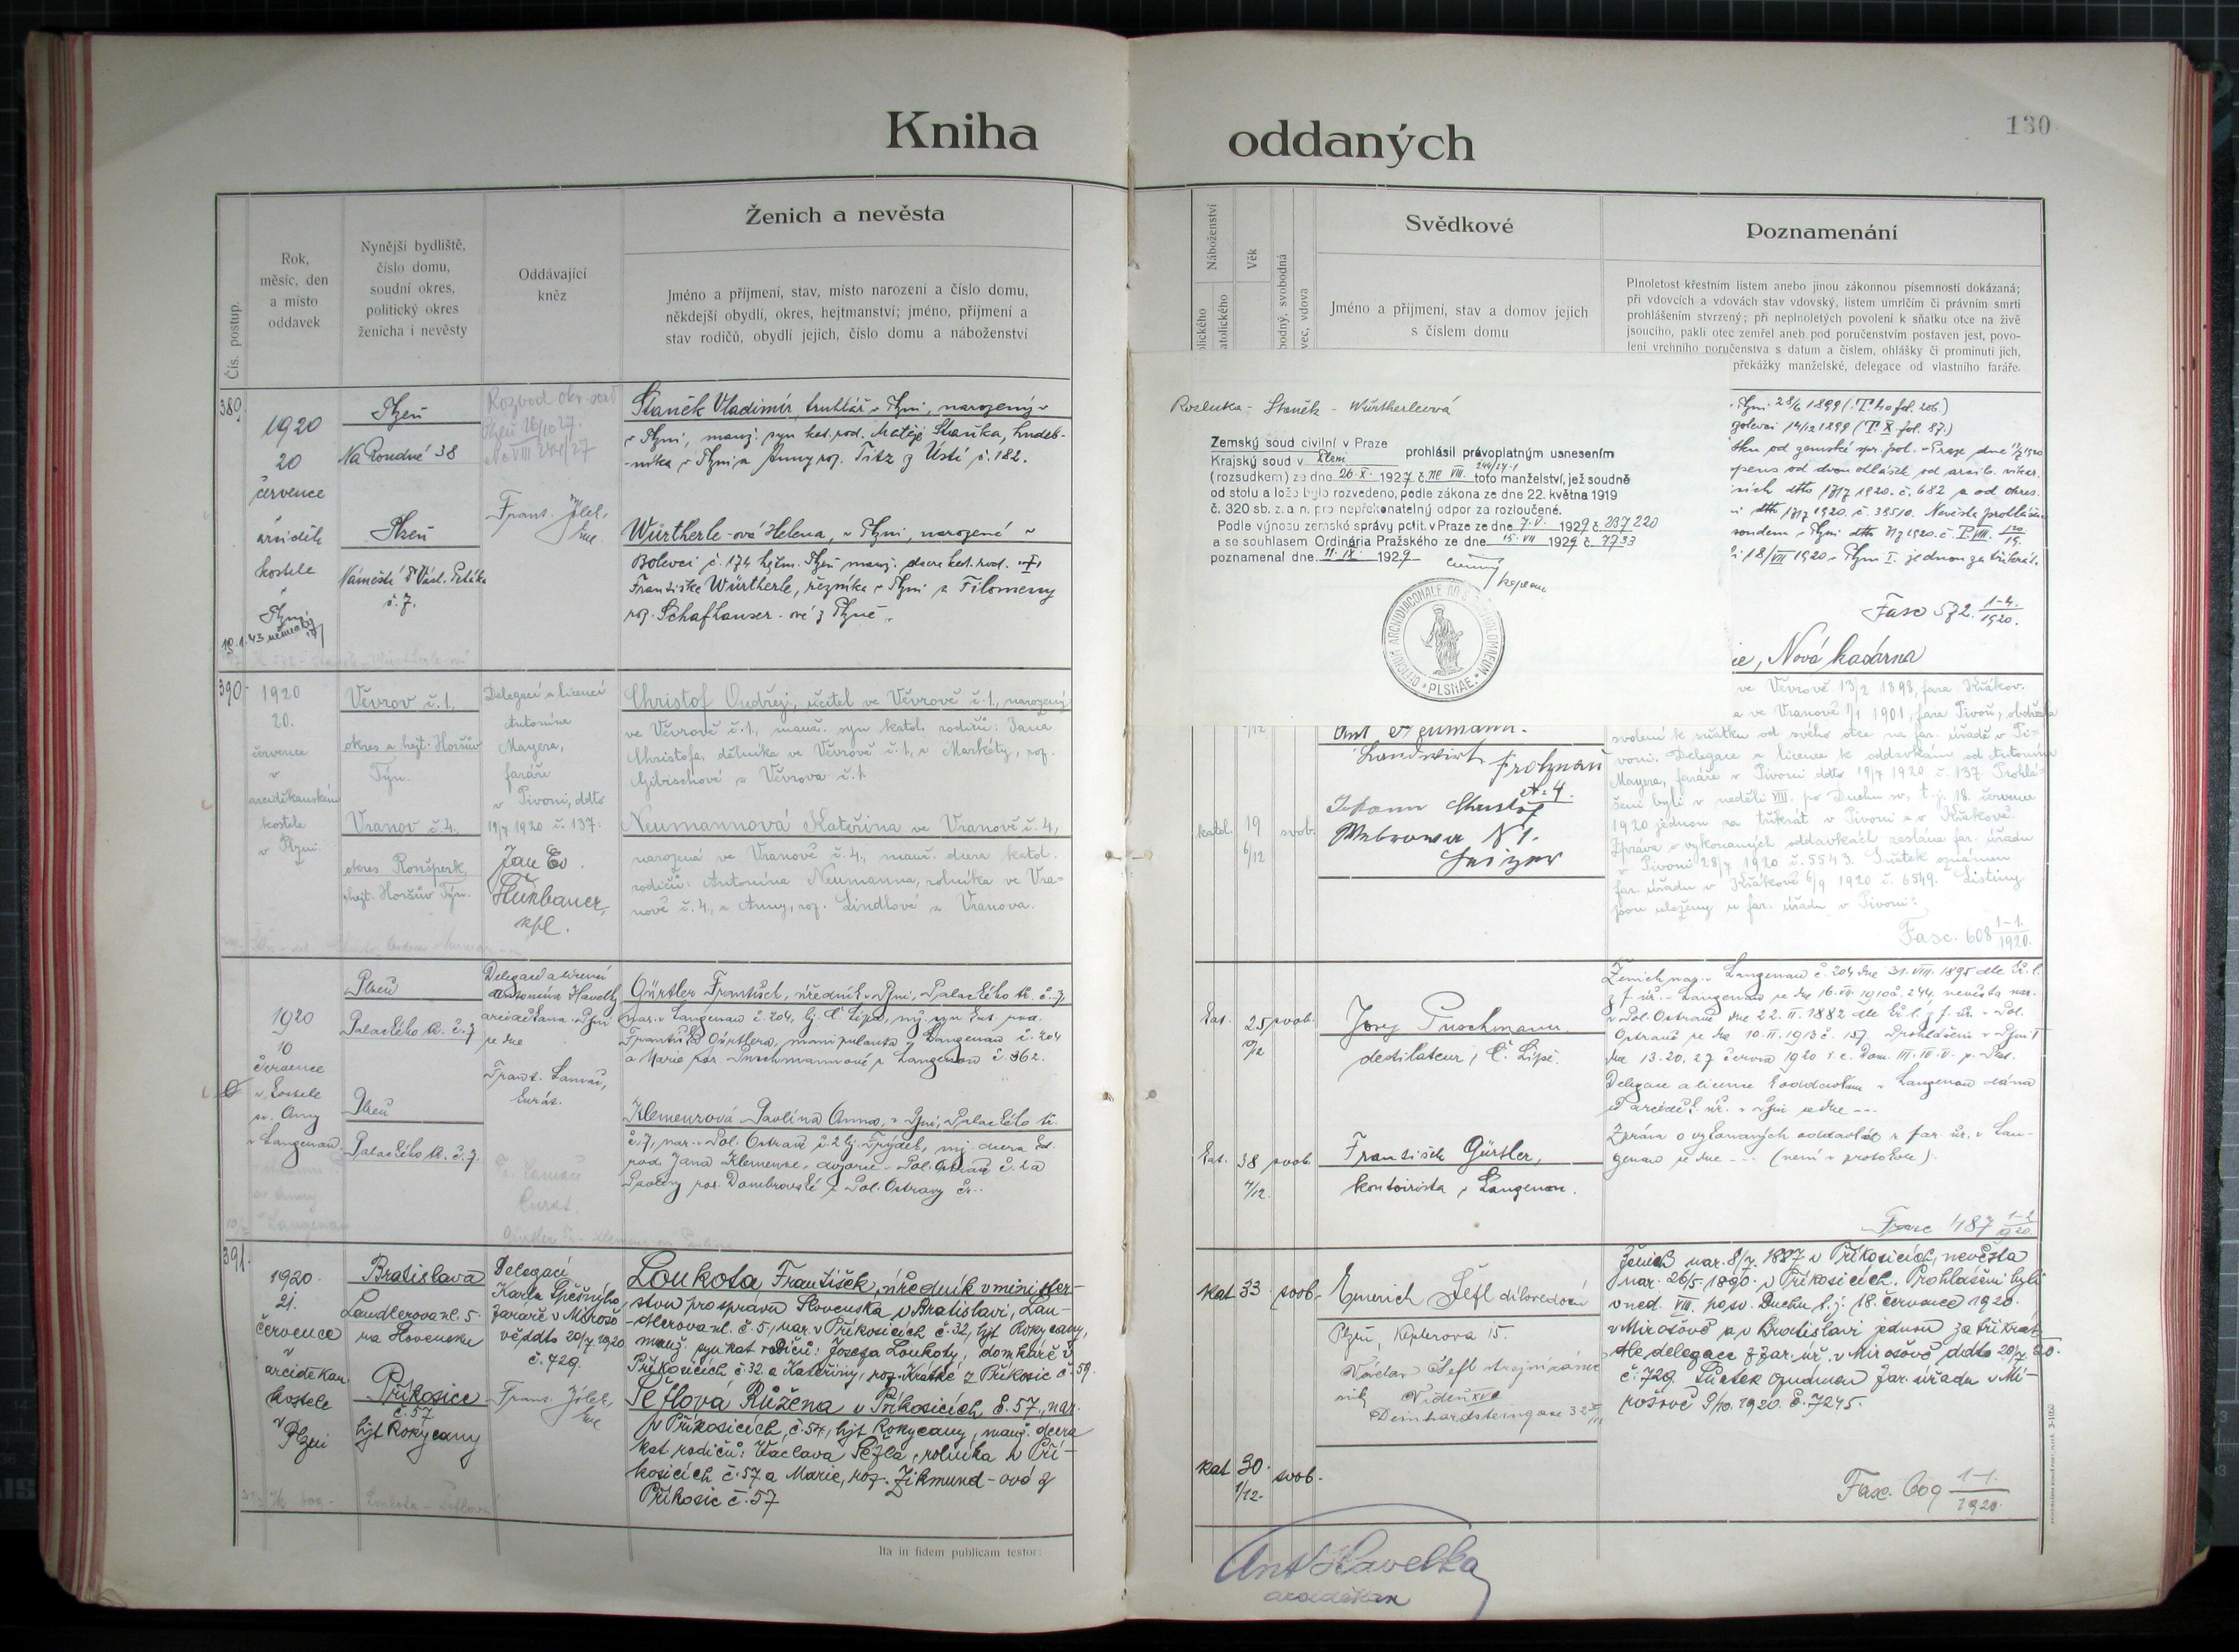 Kniha oddaných
130
Čís. postup.
Rok,
měsíc, den
a místo
oddavek
Nynější bydliště,
číslo domu,
soudní okres,
politický okres
ženicha i nevěsty
Oddávající
kněz
Ženich a nevěsta
Jméno a příjmení, stav, místo narození a číslo domu,
někdejší obydlí, okres, hejtmanství; jméno, příjmení a
stav rodičů, obydlí jejich, číslo domu a náboženství
Náboženství
Věk
Svědkové
Jméno a příjmení, stav a domov jejich
s číslem domu
Poznamenání
Plnoletost křestním listem anebo jinou zákonnou písemností dokázaná;
při vdovcích a vdovách stav vdovský, listem úmrlčím či právním smrti
prohlášením stvrzený; při neplnoletých povolení k sňatku otce na živě
jsoucího, pakli otec zemřel aneb pod poručenstvím postaven jest, povo-
lení vrchního poručenstva s datum a číslem, ohlášky či prominutí jich,
překážky manželské, delegace od vlastního faráře.
389
1920
20
července
arciděk.
kostele
v
Plzni
Plzeň
Na Roudné 38
Plzeň
č. 7.
Rozvod okr. soud
Plzeň
Frant.
Staněk Vladimír, truhlář v Plzni, narozený
v Plzni, manž. syn kat. rod. Matěje Staňka, hudeb-
níka v Plzni a Anny roz. Titz z Ústí č. 182.
Würtherle-ová Helena, v Plzni, narozená v
Bolevci č. 174 hejtm. Plzeň manž. dcera kat. rod.
Františka Würtherle, řezníka v Plzni a Filomeny
roz. Schafhauser-ové z Plzně.
Rozluka - Staněk - Würtherleová
Zemský soud civilní v Praze
Krajský soud v Plzni prohlásil právoplatným usnesením
(rozsudkem) ze dne 26.X. 1927 č. Nc VIII. 244/27-1 toto manželství, jež soudně
od stolu a lože bylo rozvedeno, podle zákona ze dne 22. května 1919
č. 320 sb. z. a n. pro nepřekonatelný odpor za rozloučené.
Podle výnosu zemské správy polit. v Praze ze dne 7.V. 1929 č. 237220
a se souhlasem Ordinária Pražského ze dne 15. VII 1929 č. 7733
poznamenal dne 11. IX. 1929
OFFICIUM ARCHIDIACONALE AD S. BARTHOLOMAEUM PLSNAE
Fasc 572. 1-4. 1920.
Nová kasárna
390.
1920
20.
července
v
arciděkanském
kostele
v Plzni.
Věvrov č. 1.
okres a hejt. Horšův
Týn.
Vranov č. 4.
okres Ronšperk,
hejt. Horšův Týn.
Delegací a licencí
Antonína
Mayera,
faráře
v Pivoni, ddto
19/7 1920 č. 137.
Jan Ev.
kpl.
Christof Ondřej, učitel ve Věvrově č. 1., narozený
ve Věvrově č. 1., manž. syn katol. rodičů: Jana
Christofa, dělníka ve Věvrově č. 1., a Markéty, roz.
Gibischové z Věvrova č. 1.
Neumannová Kateřina ve Vranově č. 4.,
narozená ve Vranově č. 4., manž. dcera katol.
rodičů: Antonína Neumanna, rolníka ve Vra-
nově č. 4., a Anny, roz. Lindlové z Vranova.
katol.
19
6/12
svob.
Ant Neumann.
Landwirt
Johann Christof
ve Věvrově 13/2 1898, fara Křákov.
ve Vranově 1/1 1901, fara Pivoň, obdržela
svolení k sňatku od svého otce na far. úřadě v Pi-
voni. Delegace a licence k oddavkám od Antonína
Mayera, faráře v Pivoni ddto 19/7 1920 č. 137. Prohlá-
šeni byli v neděli VIII. po Duchu sv., t. j. 18. července
1920 jednou za třikrát v Pivoni a v Křákově.
Zpráva o vykonaných oddavkách zaslána far. úřadu
v Pivoni 28/7 1920 č. 5543. Sňatek oznámen
far. úřadu v Křákově 6/9 1920 č. 6549. Listiny
jsou uloženy u far. úřadu v Pivoni.
Fasc. 608 1-1. 1920.
1920
10
července
v kostele
sv. Anny
v Langenau.
Plzeň
Palackého tř. č. 7
Plzeň
Palackého tř. č. 7.
Delegací a licencí
Antonína Havelky,
arciděkana v Plzni
ze dne
Gürtler František, úředník v Plzni, Palackého tř. č. 7,
nar. v Langenau č. 204, hj. Č. Lípa, mž. syn kat. rod.
Františka Gürtlera, manipulanta z Langenau č. 204
a Marie roz. Puschmannové z Langenau č. 362.
Klemenzová Pavlína Anna, v Plzni, Palackého tř.
č. 7, nar. v Pol. Ostravě č. 2 hj. Frýdek, mž. dcera kat.
rod. Jana Klemenze, v Pol. Ostravě č. 2 a
Pavlíny roz. Dombrovské z Pol. Ostravy
kat.
25
svob.
Josef Puschmann
destilateur, Č. Lípě.
kat.
38
4/12.
svob.
František Gürtler,
kontorista, Langenau.
Ženich nar. v Langenau č. 204 dne 31. VIII. 1895 dle kř. l.
z f. úř. v Langenau ze dne 16. VII. 1910 č. 244. nevěsta nar.
v Pol. Ostravě dne 22. II. 1882 dle kř. l. z f. úř. v Pol.
Ostravě ze dne 10. II. 1913 č. 157. Prohlášeni v Plzni
dne 13. 20. 27 června 1920
Delegace a licence k oddavkám v Langenau dána
z arciděk. úř. v Plzni ze dne ---
Zpráva o vykonaných oddavkách z far. úř. v Lan-
genau ze dne --- (není v protokole).
Fasc 487 1-2 1920.
391.
1920.
21.
července
v
arciděkan.
kostele
v
Plzni
Bratislava
Landlerova ul. 5.
na Slovensku
Příkosice
č. 57
hjt Rokycany
Delegací
Karla Spěšného,
faráře v Mirošo-
vě ddto 20/7. 1920
č. 729.
Frant.
Loukota František, úředník v minister-
stvu pro správu Slovenska v Bratislavi, Lan-
dlerova ul. č. 5., nar. v Příkosicích č. 32, hjt Rokycany,
manž. syn kat. rodičů: Josefa Loukoty, domkáře v
Příkosicích č. 32 a Kateřiny, roz. Krátké z Příkosic č. 59.
Šeflová Růžena v Příkosicích č. 57., nar.
v Příkosicích, č. 57, hjt Rokycany, manž. dcera
kat. rodičů: Václava Šefla, rolníka v Pří-
kosicích č. 57 a Marie, roz. Zikmund-ové z
Příkosic č. 57
kat
33
svob.
Emerich Šefl dílovedoucí
Plzeň, Keplerova 15.
Václav Šefl strojní zámeč
ník Vídeň XVI
kat
30.
1/12.
svob.
Ženich nar. 8/7. 1887 v Příkosicích, nevěsta
nar. 26/5. 1890. v Příkosicích. Prohlášeni byli
v ned. VIII. po sv. Duchu t. j. 18. července 1920.
v Mirošově a v Bratislavi jednou za třikrát
dle delegace z far. úř. v Mirošově ddto 20/7. 20.
č. 729. Sňatek oznámen far. úřadu v Mi-
rošově 9/10. 1920. č. 7245.
Fasc. 609 1-1. 1920.
Ita in fidem publicam testor:
Ant Havelka
arciděkan